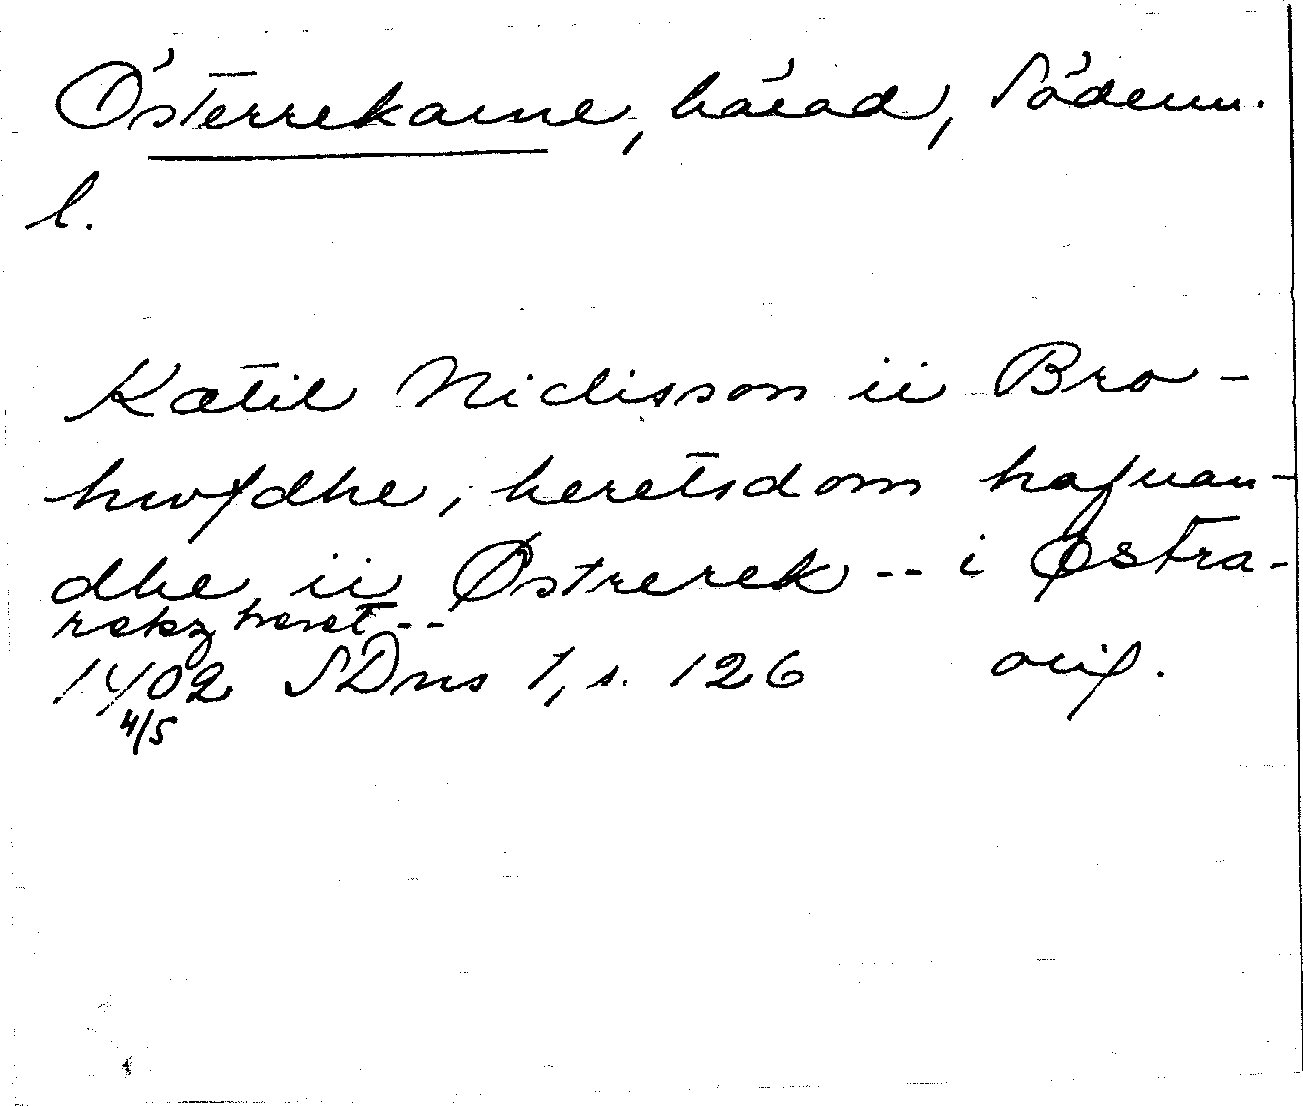 Österrekarne, härad, Söderm.
l.
Kætil Niclisson ii Bro-
hwfdhe, heretsdom hafuan-
dhe ii Østrerek -- i Østra-
rekz heret --
1402 SDns 1, s. 126 orig.
4/5